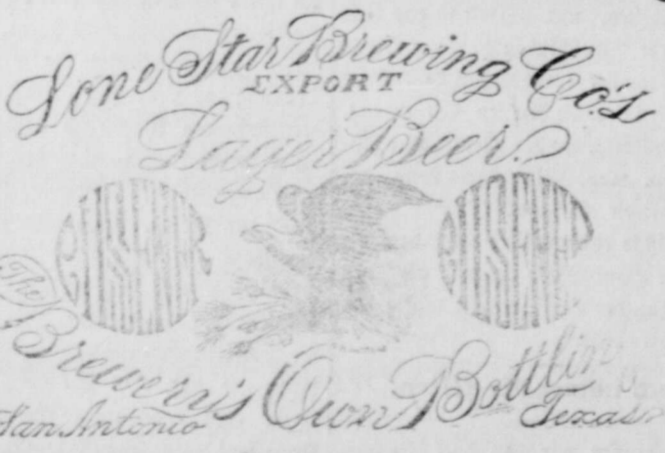 Lone Star Brewing Co's
EXPORT
Lager Beer.
The
Brewery's Own Bottling
San Antonio Texas